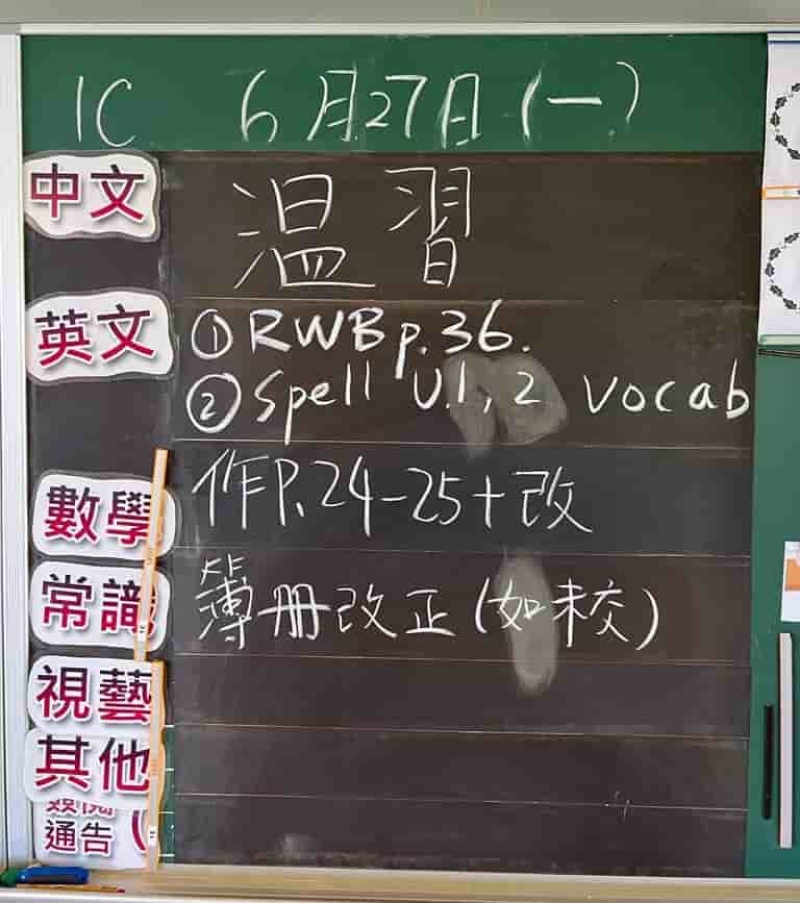 1C 6月27日(一)
中文 温習
英文 ①RWB p.36.
②Spell U.1,2 vocab
數學 作P.24-25+改
常識 簿冊改正(如未交)
視藝
其他
通告(